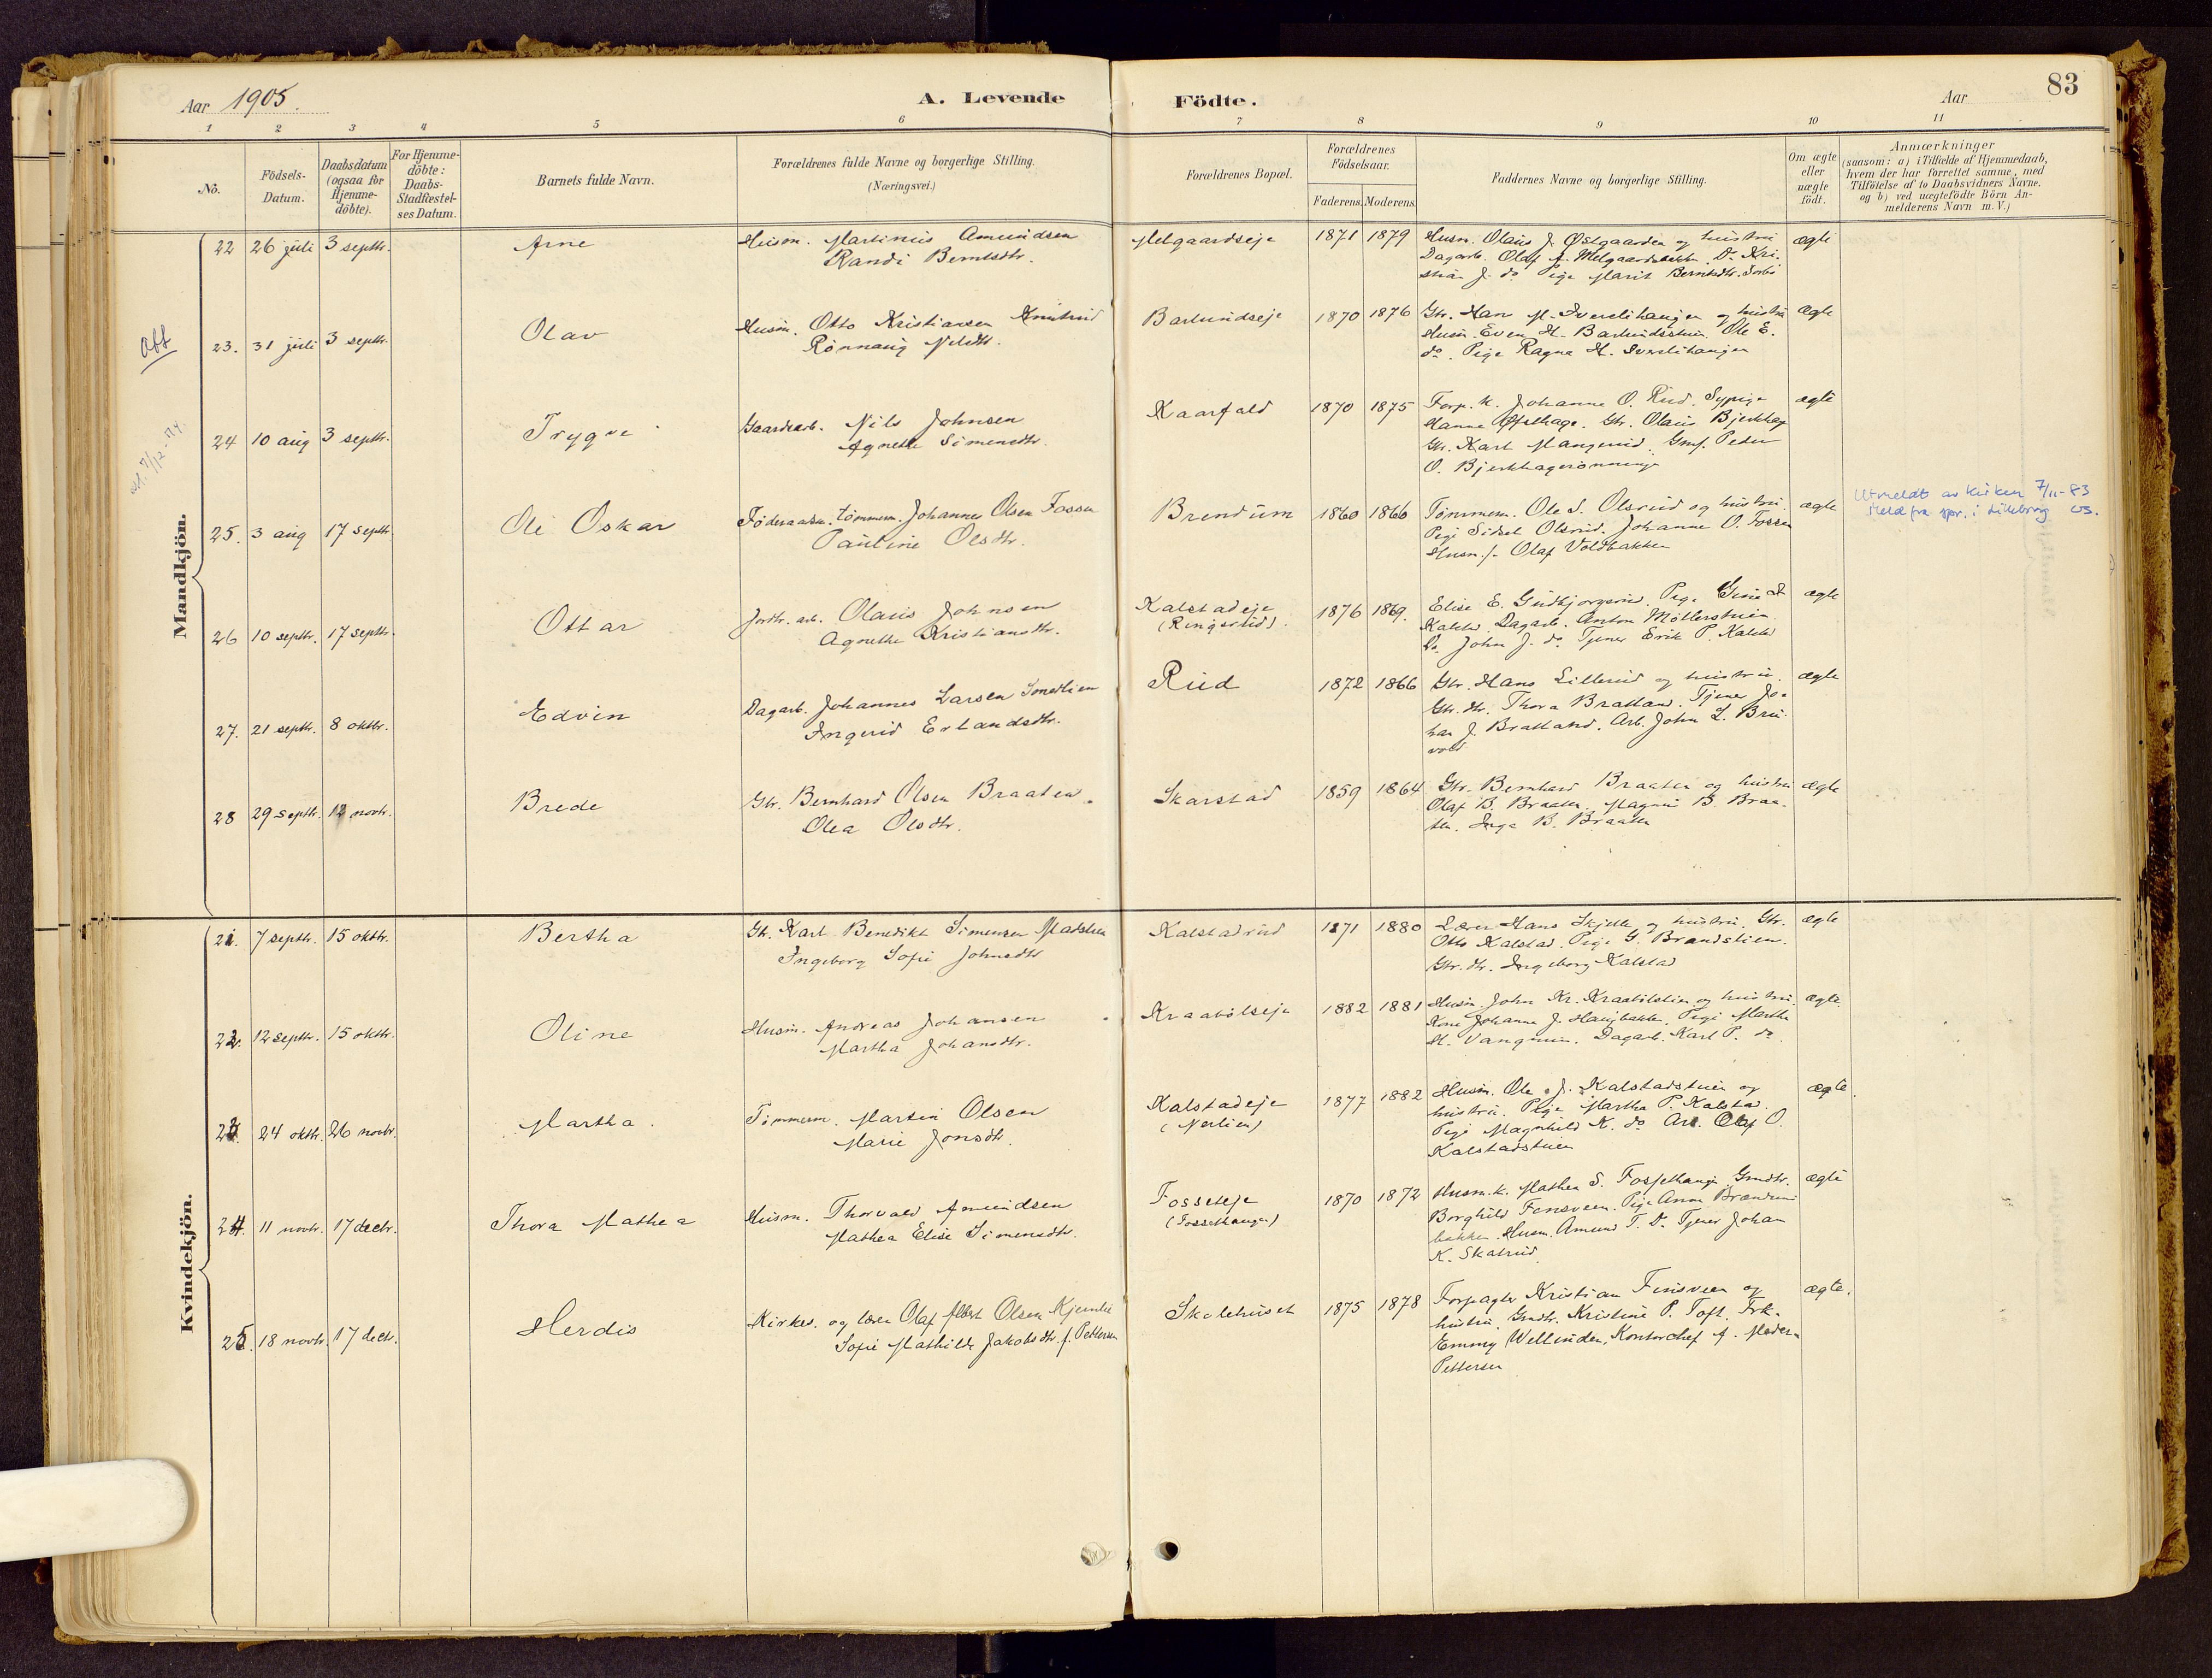 Aar 1905.
A. Levende Födte.
Aar
83
1 2 3 4 5 6 7 8 9 10 11
No.
Födsels-
Datum.
Daabsdatum
(ogsaa for
Hjemme-
döbte).
For Hjemme-
döbte:
Daabs-
Stadfæstel-
ses Datum.
Barnets fulde Navn.
Forældrenes fulde Navne og borgerlige Stilling.
(Næringsvei.)
Forældrenes Bopæl.
Forældrenes
Födselsaar.
Faderens. Moderens.
Faddernes Navne og borgerlige Stilling.
Om ægte
eller
uægte
födt.
Anmærkninger
(saasom: a) i Tilfælde af Hjemmedaab,
hvem der har forrettet samme, med
Tilföielse af to Daabsvidners Navne.
og b) ved uægtefödte Börn An-
melderens Navn m. V.)
Mandkjön.
22 26 juli 3 septbr. Arne
Husm. Martinius Amundsen
Randi Berntsdtr.
Melgaardseje 1871 1879
Husm. Olaus J. Østgaarden og hustru
Dagarb. Olaf A. Melgaardsbakken. Do Kri-
stian J. do Pige Marit Berntsdtr. Sorbö
ægte
23. 31 juli 3 septbr. Olav
Husm. Otto Kristiansen Knutrud
Rönnaug Nilsdtr.
Barlundseje 1870 1876
Gbr. Hans M. Sverslihaugen og hustru
Husm. Even H. Barlundsstuen. Ole E.
do. Pige Ragna H. Sverslihaugen
ægte
24 10 aug 3 septbr. Trygve
Gaardarb. Nils Johnsen
Agnethe Simensdtr.
Kaarfald 1870 1875
Forp. k. Johanne O. Rud. Sypige
Hanna Ø. Gbr. Olaus Bjerkhage
Gbr. Karl Haugerud. Gmf. Peder
O. Bjerkhagerönningen
ægte
25. 3 aug 17 septbr. Ole Oskar
Föderaadsm. tömmerm. Johannes Olsen Fossen
Pauline Olsdtr.
Brendum 1860 1866
Tömmerm. Ole S. Olsrud og hustru.
Pige Sidsel Olsrud. Johanne O. Fossen
Husm. f. Olaf Voldbakken
ægte
Utmeldt av kirken 7/11-83
Meld fra spr. i Lillebrog
26 10 septbr. 17 septbr. Ottar
Jordbr. arb. Olaus Johnsen
Agnethe Kristiansdtr.
Kalstadeje
(Ringsrud). 1876 1869.
Elise E. Gudbjørgsrud. Pige Gina
Kalstad. Dagarb. Anton Möllerstuen
Do John J. do. Tjener Erik P. Kalstad
ægte
27. 21 septbr. 8 oktbr. Edvin
Dagarb. Johannes Larsen Smedlien
Ingerid Erlandsdtr.
Rud 1872 1866
Gbr. Hans Lillerud og hustru.
Gbr. dtr. Thora Bratland. Tjener Jo-
han J. Bratland. Arb. John L. Bru-
vold
ægte
28 29 septbr. 12 novbr. Brede
Gbr. Bernhard Olsen Braaten
Olea Olsdtr.
Skarstad 1859 1864
Gbr. Bernhard Braaten og hustru
Olaf B. Braaten. Magna B. Braa-
ten. Inga B. Braaten
ægte
Kvindekjön.
21. 7 septbr. 15 oktbr. Bertha
Gb. Karl Benedikt Simensen Madstuen
Ingeborg Sofie Johnsdtr
Kalstadrud 1871 1880
Lærer Hans Skjelle og hustru. Gbr.
Otto Kalstad. Pige G. Brandstien.
Gbr. dtr. Ingeborg Kalstad
ægte
22. 12 septbr. 15 oktbr. Oline
Husm. Andreas Johansen
Martha Johansdtr.
Kraabölseje 1882 1881
Husm. John Kr. Kraabölslien og hustru.
Kone Johanne J. Haugbakken. Pige Martha
H. Vangum. Dagarb. Karl P. do
ægte.
23. 24 oktbr. 26 novbr. Martha.
Tömmerm. Martin Olsen
Marie Jonsdtr.
Kalstadeje
(Nerlien) 1877 1882
Husm. Ole J. Kalstadstuen og
hustru. Pige Martha P. Kalstad.
Pige Magnhild K. do Arb. Olaf O.
Kalstadstuen
ægte.
24. 11 novbr. 17 decbr. Thora Mathea
Husm. Thorvald Amundsen
Mathea Elise Simensdtr.
Fosseseje
(Fossehaugen) 1870 1872
Husm. k. Mathea S. Fossehaugen. Gmdtr.
Borghild Fonsveen. Pige Anna Brændum-
bakken. Husm. Amund T. do. Tjener Johan
K. Skalrud.
ægte
25. 18 novbr. 17 decbr. Herdis
Kirkes. og lærer Olaf Albert Olsen Kjernli
Sofie Mathilde Jakobsdtr. f. Pettersen
Skolehuset 1875 1878
Forpagter Kristian Finsveen og
hustru. Gmdtr. Kristine P. Toft. Frk.
Emmy Wellinder, Kontorchef A. Meder-
Pettersen
ægte.